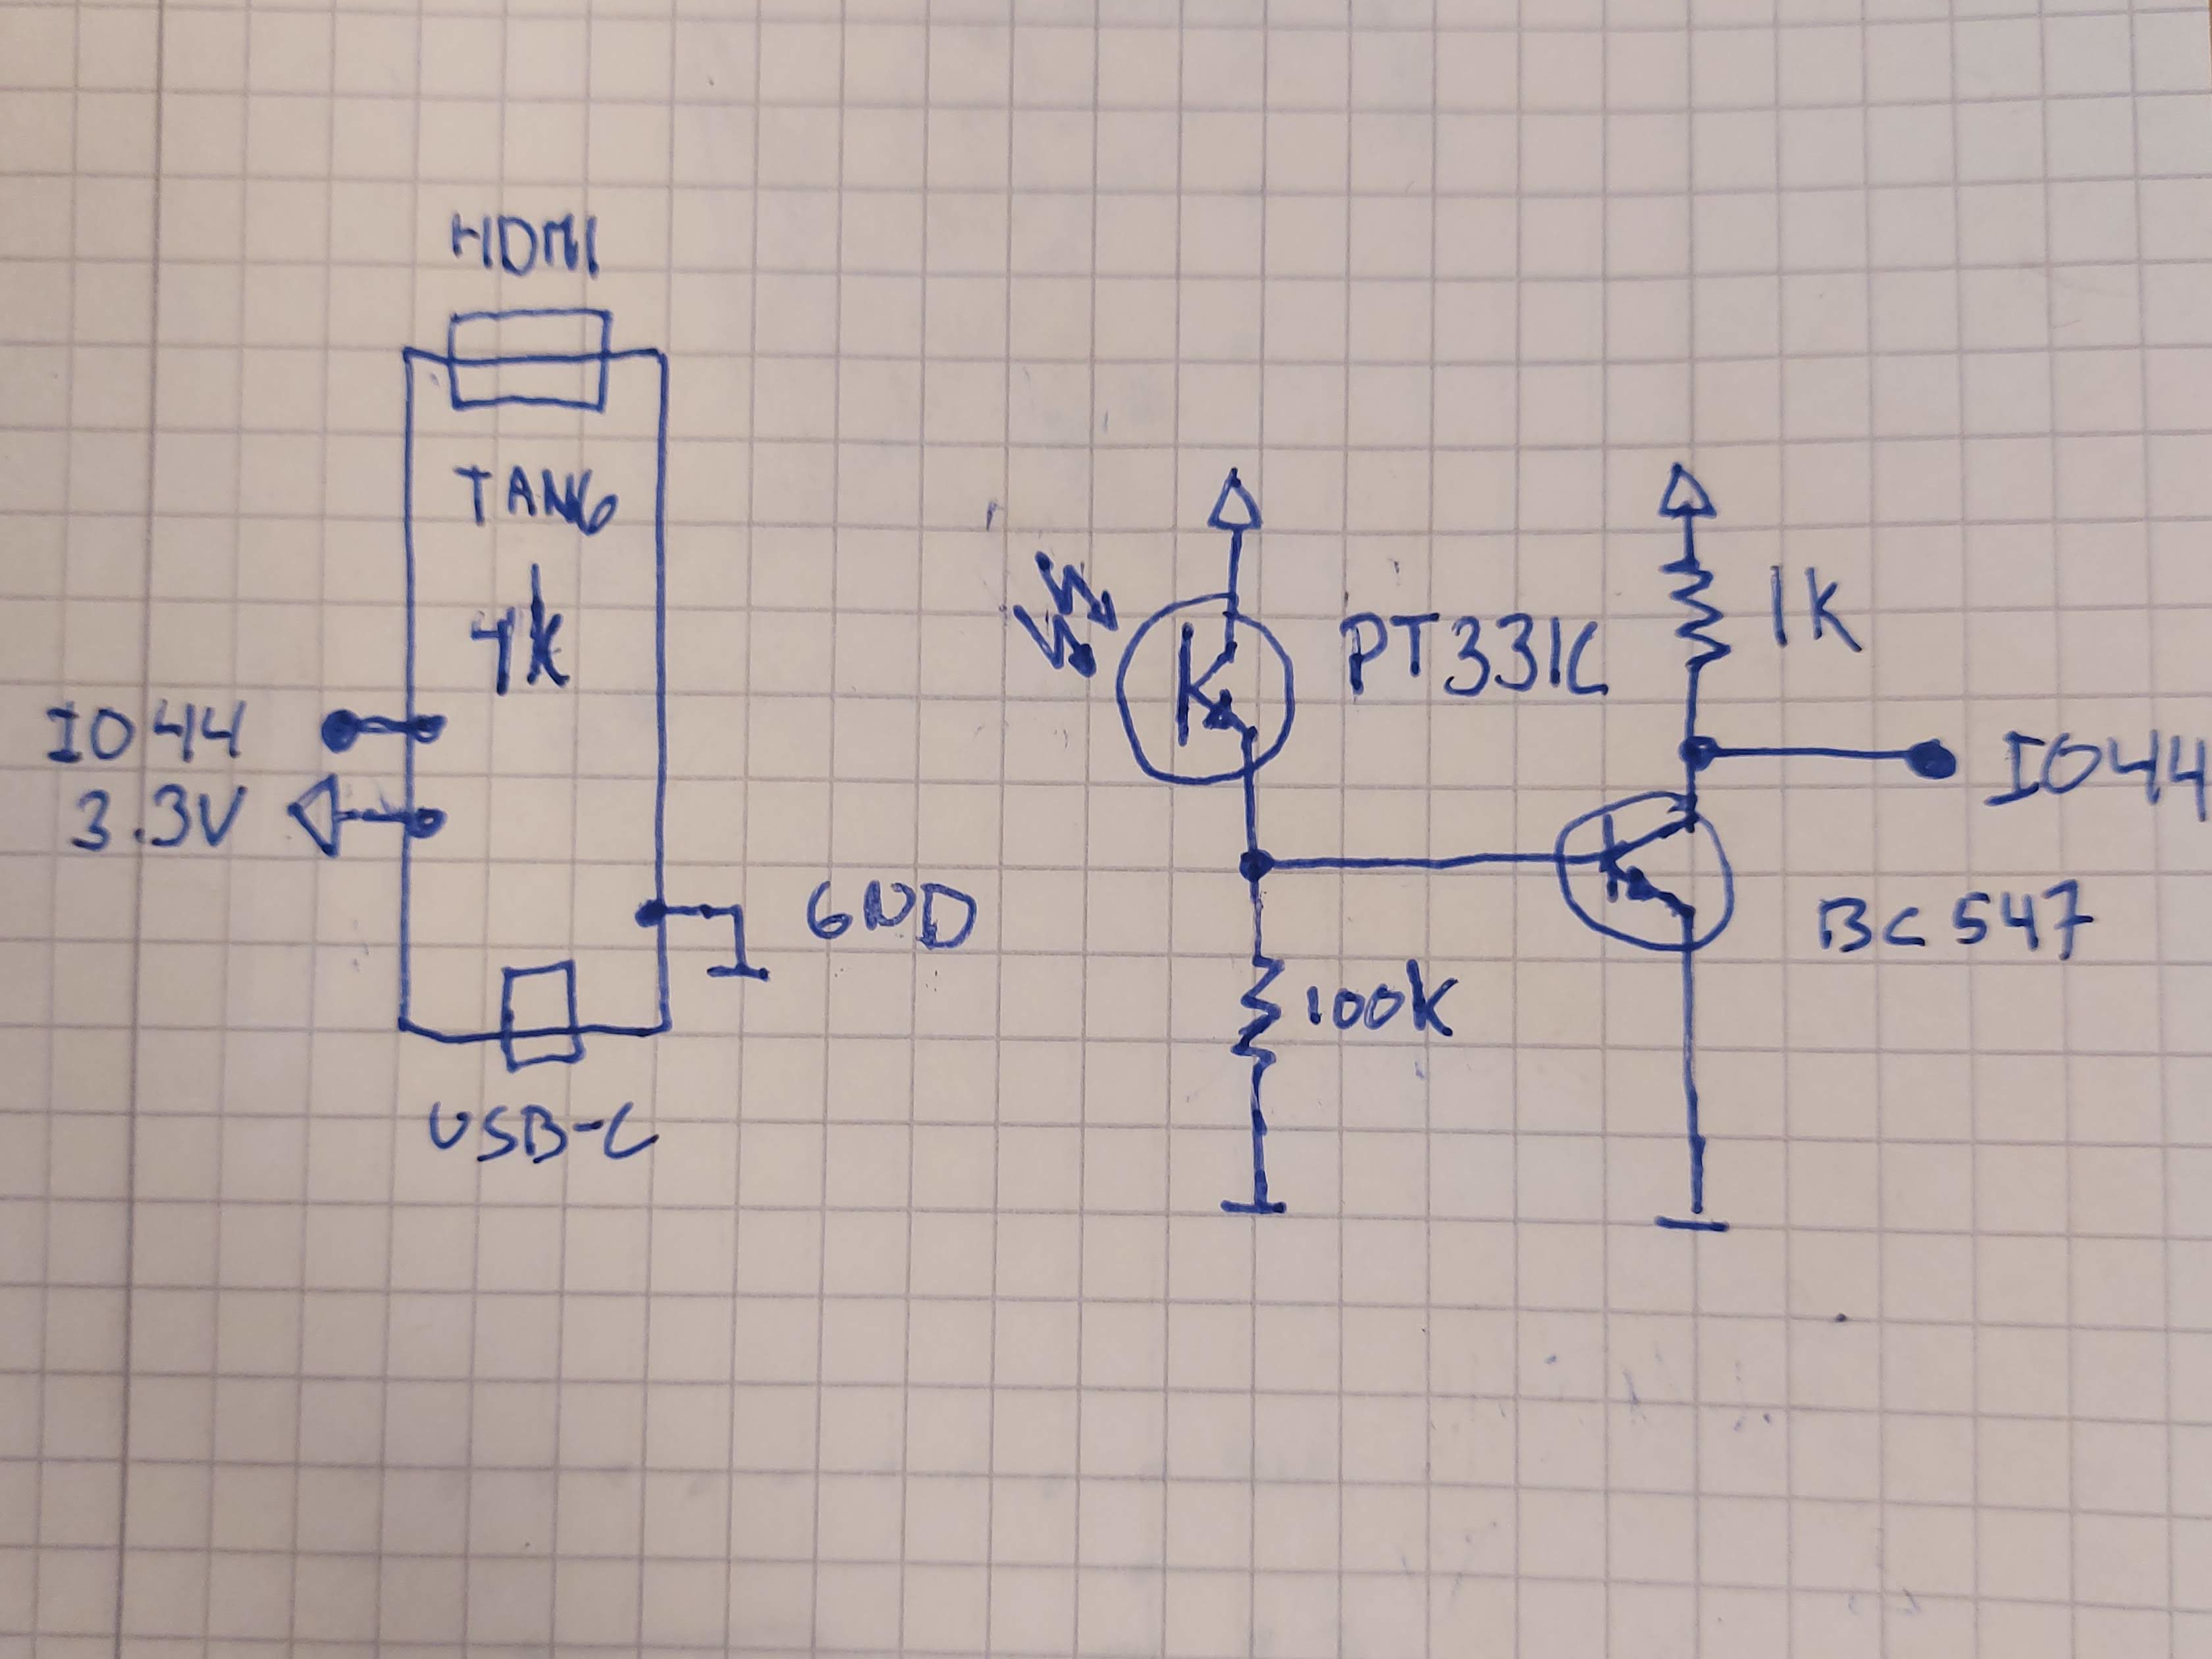 HDMI
TANG
4K
IO44
3.3V
GND
USB-C
PT331C
1K
IO44
BC547
100K